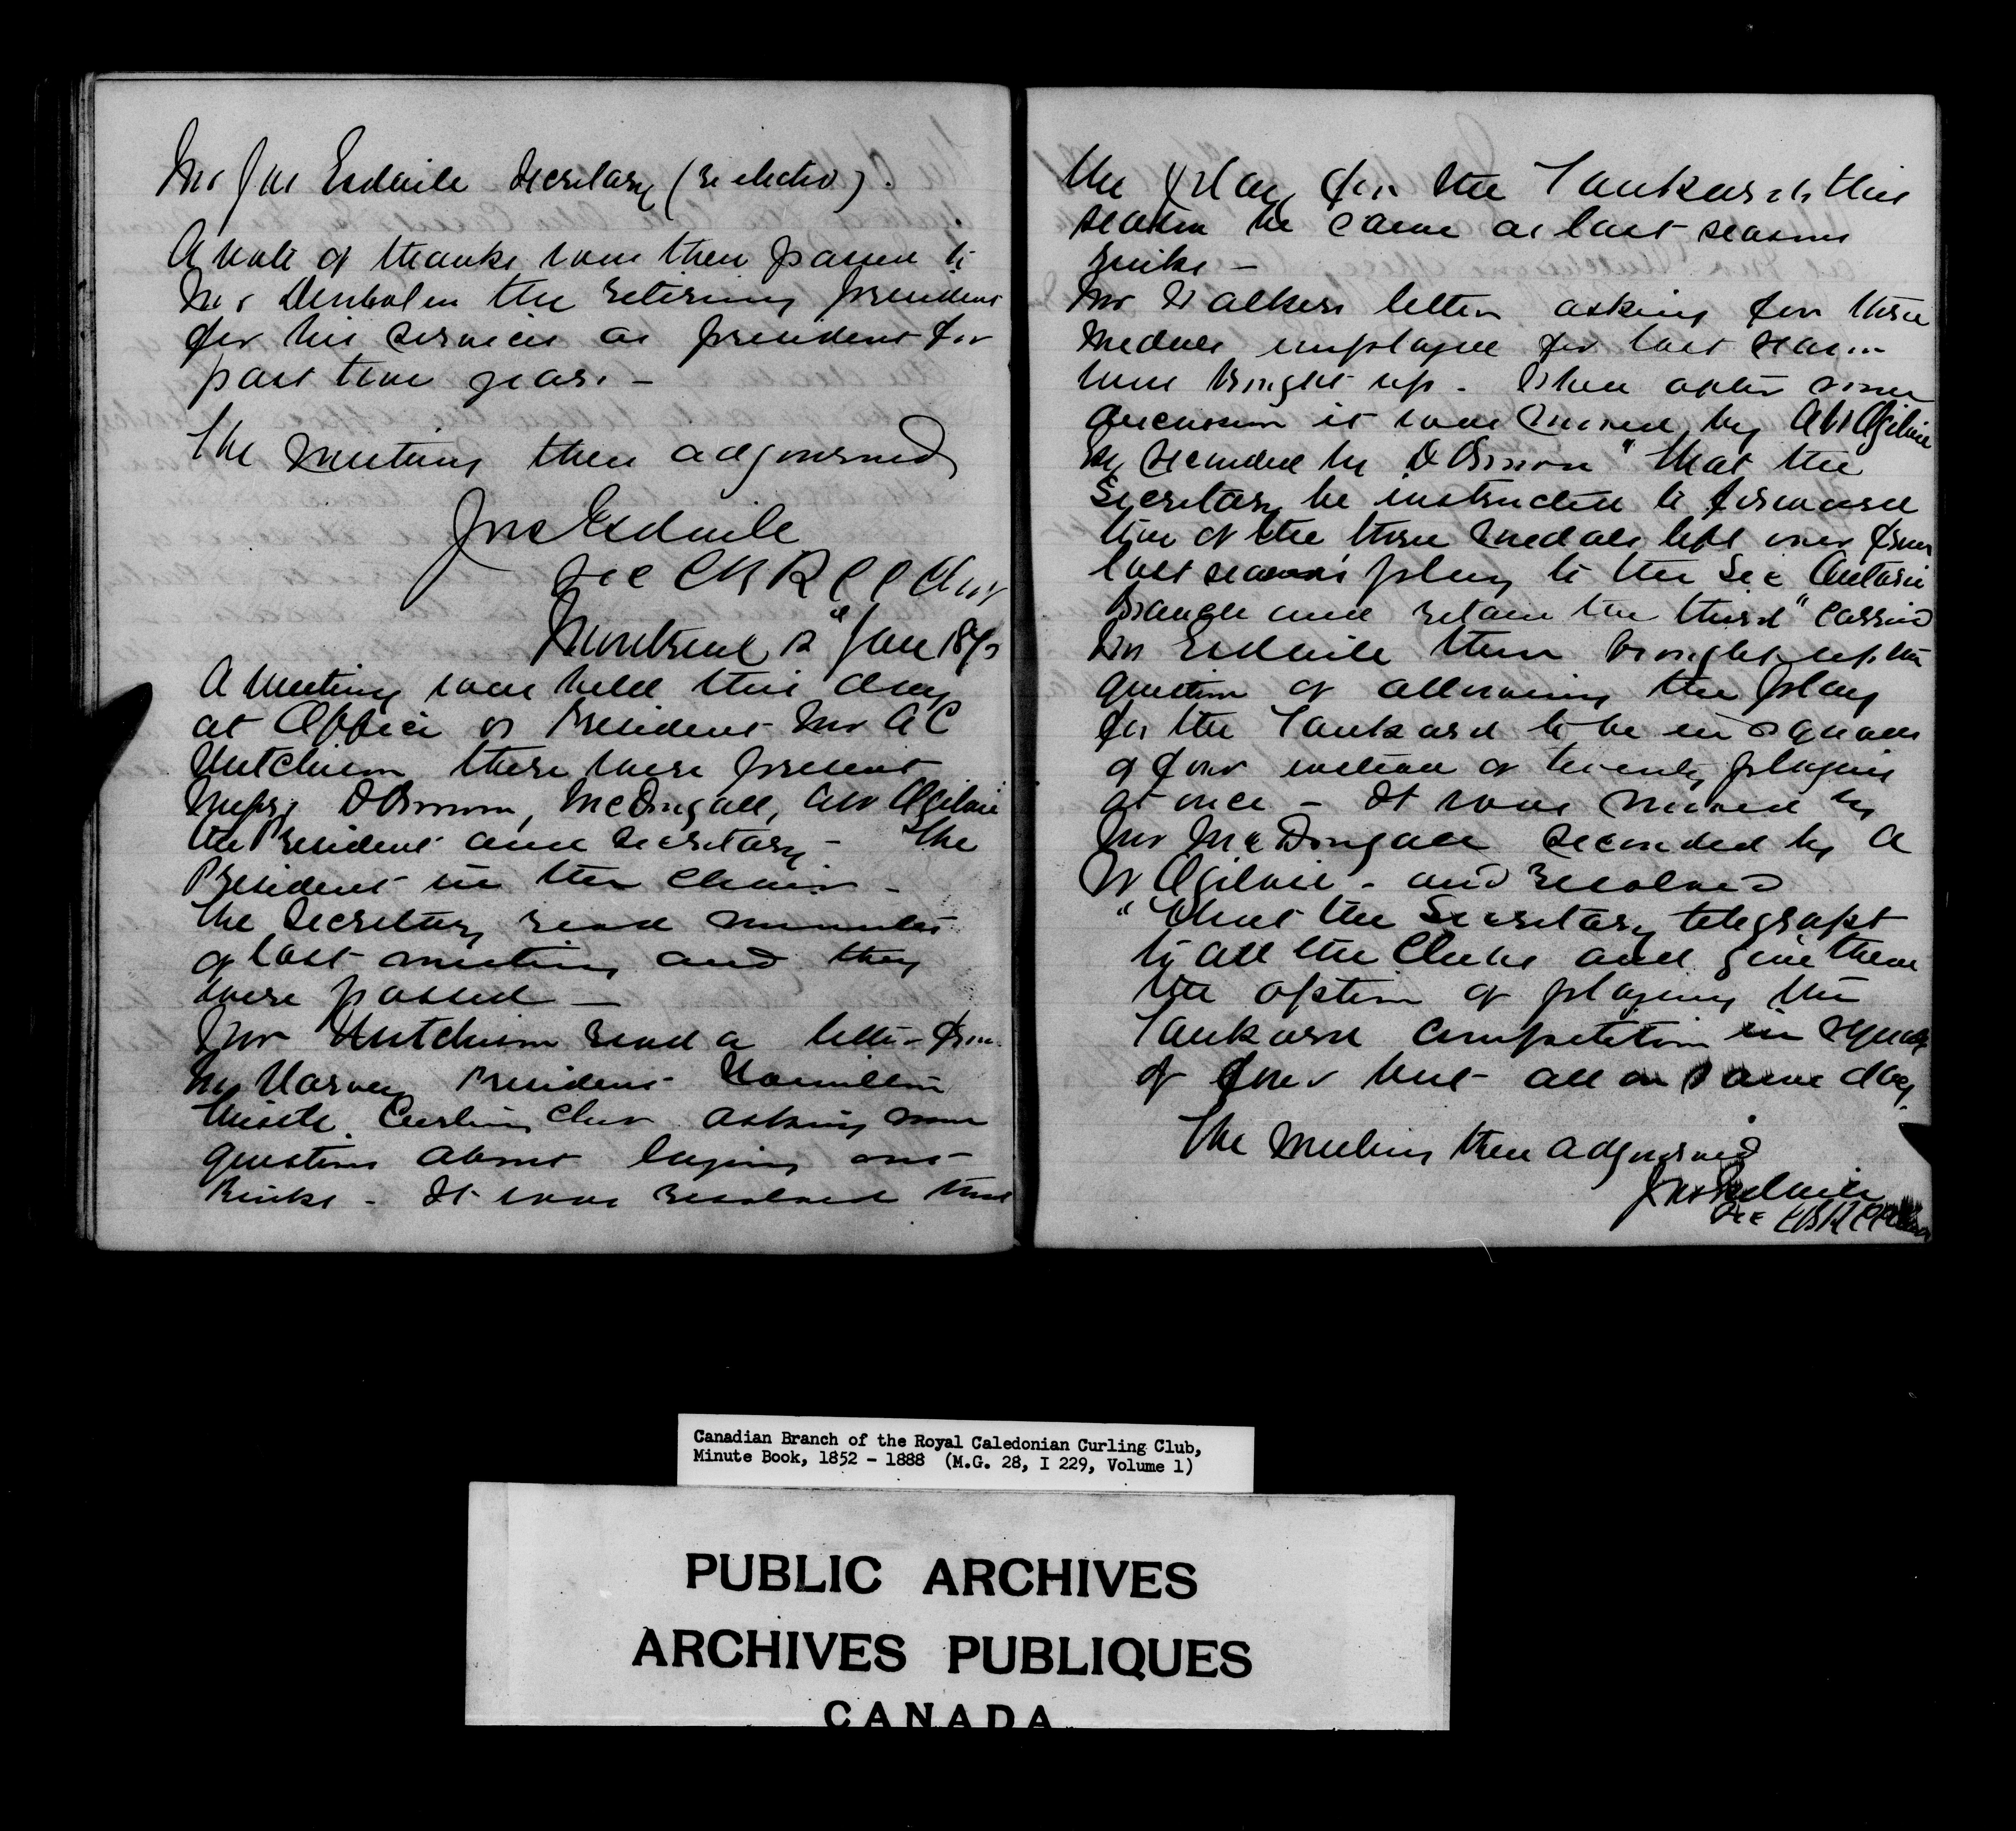 Mr Jno Esdaile Secretary (re elected).
A vote of thanks was then passed to
Mr Denholm the retiring president
for his services as president for
past two years. —
The meeting then adjourned
Jno Esdaile
Sec C B R C C Club
Montreal 12" Jan
A meeting was held this day
at Office of President Mr A C
Hutchison there were present
Messrs D Brown, McDougall, AW Ogilvie
the President and Secretary — The
President in the Chair —
The Secretary read minutes
of last meeting and they
were passed —
Mr Hutchison read a letter from
Mr Harvey President Hamilton
Thistle Curling Club asking some
questions about laying out
Rinks — It was resolved that
the play for the Tankard this
season be same as last seasons
rinks —
Mr Walkers letter asking for three
medals unplayed for last season
was brought up — When after some
discussion it was moved by AW Ogilvie
seconded by D Brown "that the
Secretary be instructed to forward
two of the three medals left over from
last seasons play to the Sec Ontario
Branch and retain the third" Carried
Mr Esdaile then brought up the
question of allowing the play
for the Tankard to be in squads
of four instead of twenty playing
at once — It was moved by
Mr McDougall seconded by A
W Ogilvie — and resolved
"That the Secretary telegraph
to all the Clubs and give them
the option of playing the
Tankard competition in squads
of four but all on same day.
The meeting then adjourned
Jno Esdaile
Sec C B R C C
Canadian Branch of the Royal Caledonian Curling Club,
Minute Book, 1852 - 1888 (M.G. 28, I 229, Volume 1)
PUBLIC ARCHIVES
ARCHIVES PUBLIQUES
CANADA